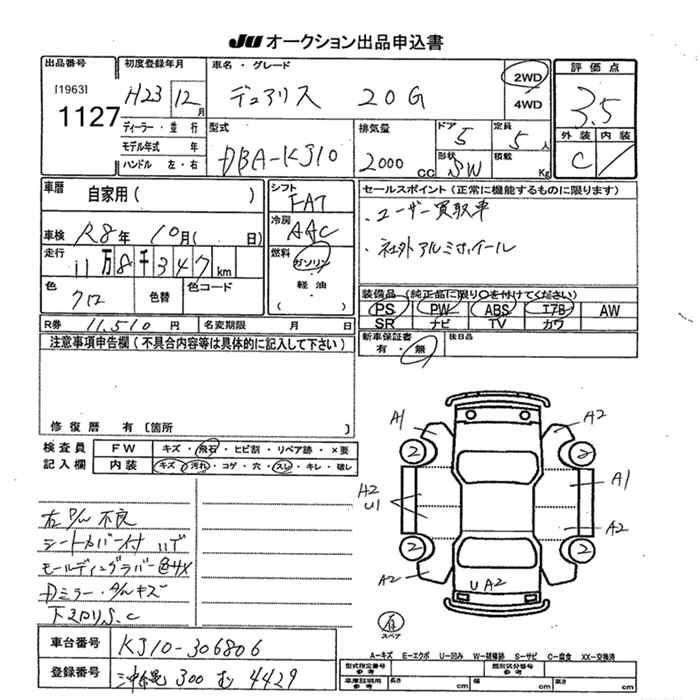 JU オークション出品申込書
出品番号
[1963]
1127
初度登録年月
H23 12月
ディーラー・並行
モデル年式 年
ハンドル 左・右
車名・グレード
デュアリス 20G
2WD
4WD
型式
DBA-KJ10
排気量
2000 CC
ドア
5
定員
5人
形状
SW
積載
Kg
評価点
3.5
外装 内装
C
車歴
自家用( )
車検 R8年 10月( 日)
走行
11万8千347km
色
クロ
色替
色コード
シフト
FAT
冷房
AAC
燃料
ガソリン
軽油
( )
R券 11,510円 名変期限 月 日
セールスポイント(正常に機能するものに限ります)
・ユーザー買取車
・社外アルミホイール
装備品(純正品に限り〇を付けてください)
PS PW ABS エアB AW
SR ナビ TV カワ
新車保証書
有・無
後日品
注意事項申告欄(不具合内容等は具体的に記入して下さい)
修復歴 有[箇所 ]
検査員
記入欄
FW キズ・飛石・ヒビ割・リペア跡・×要
内装 キズ・汚れ・コゲ・穴・スレ・キレ・破し
右P/W不良
シートカバー付
モールディングラバー
Dミラー・キズ
下回りS.C
A1
A2
2
2
A2
U1
A1
A2
2
2
A2
U A2
スペア
A-キズ E-エクボ U-凹み W-補修跡 S-サビ C-腐食 XX-交換済
車台番号 KJ10-306806
登録番号 沖縄 300 む 4429
型式指定番号
参考
類別区分番号
参考
車庫証明用
参考
長さ cm 幅 cm 高さ cm